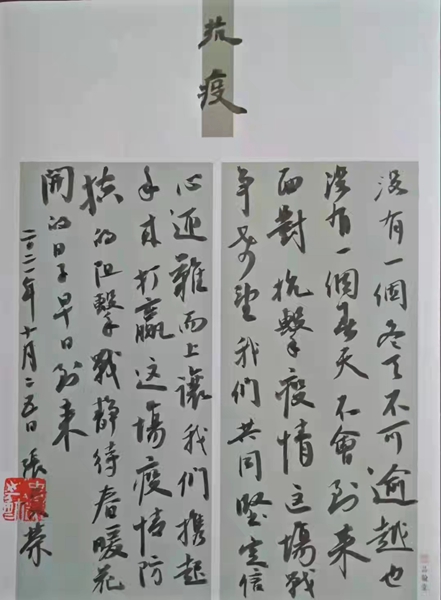 抗疫
没有一個冬天不可逾越也
没有一個春天不會到来
面對抗擊疫情这場戰
争希望我们共同堅定信
心迎難而上讓我们携起
手来打贏这場疫情防
控的阻擊戰静待春暖花
開的日子早日到来
二〇二一年十月二五日 張榮